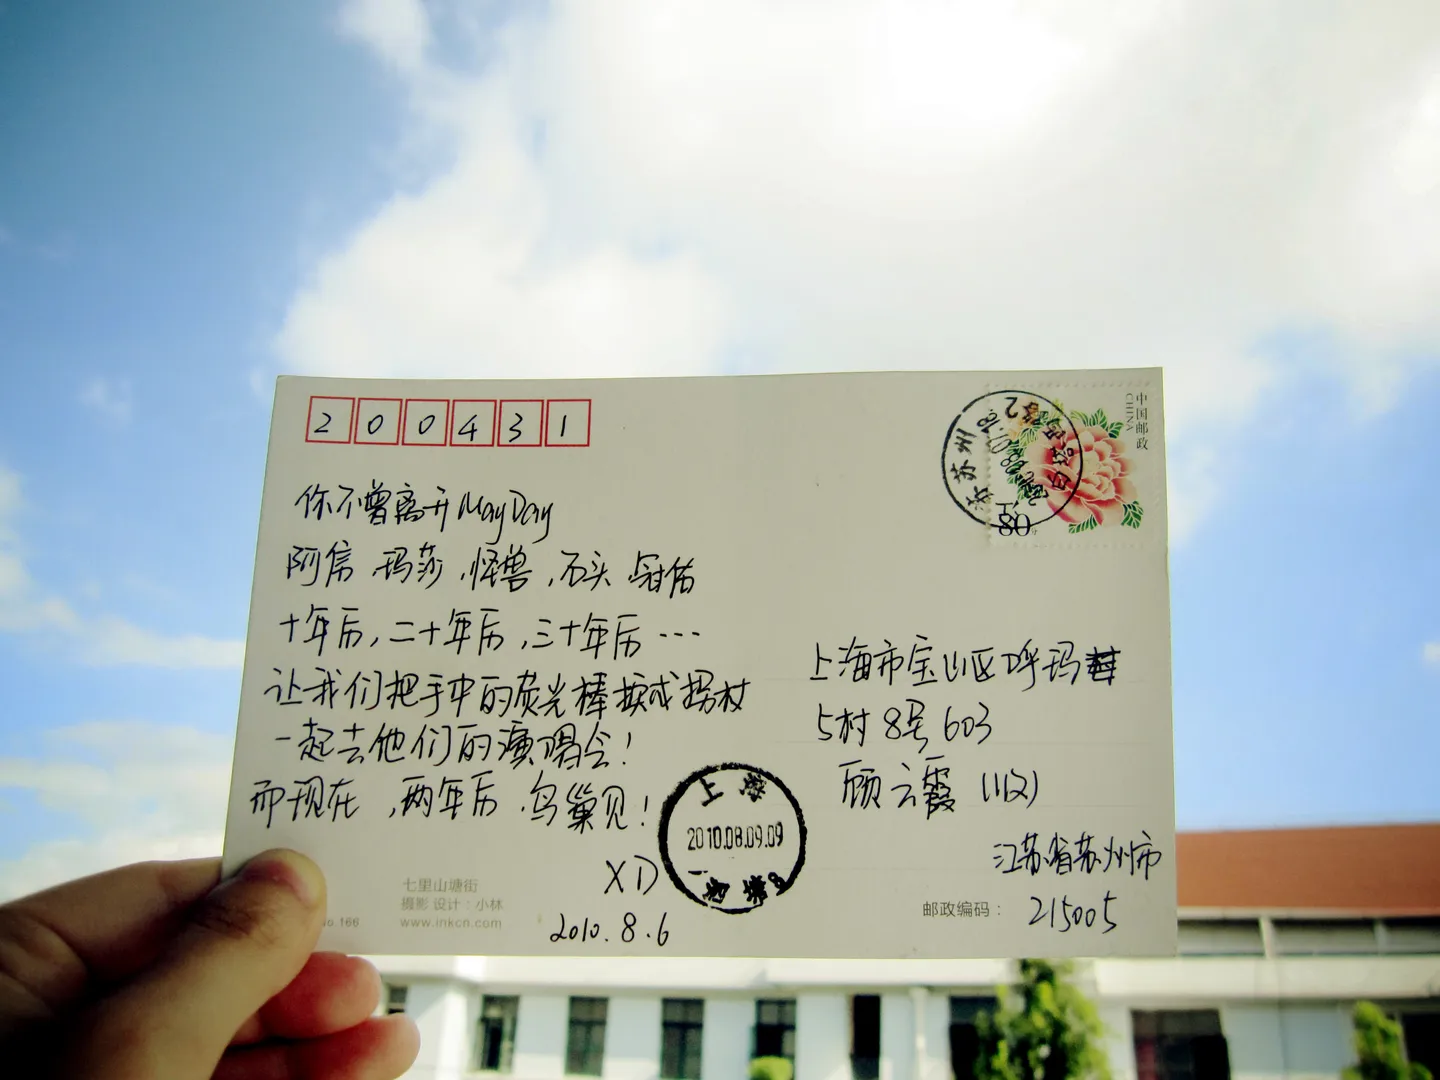 200431
中国邮政
CHINA
80分
江苏苏州
你不曾离开MayDay
阿信、玛莎、怪兽、石头、冠佑
十年后,二十年后,三十年后…
让我们把手中的荧光棒换成拐杖
一起去他们的演唱会!
而现在,两年后,鸟巢见!
XD
2010.8.6
上海市宝山区呼玛
5村8号603
顾云霞(收)
江苏省苏州市
邮政编码: 215005
上海
2010.08.09.09
七里山塘街
摄影 设计:小林
No 166
www.inkcn.com